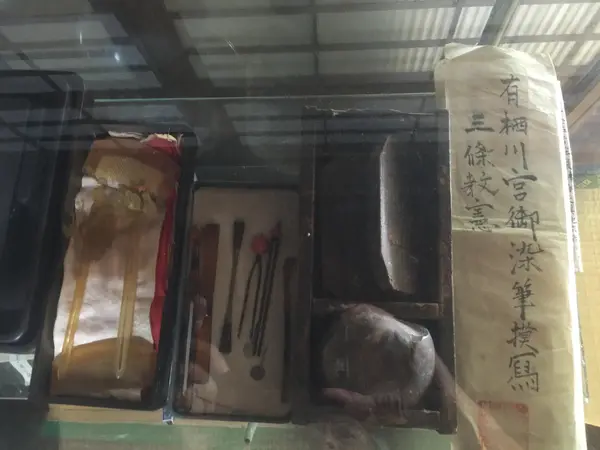 有栖川宮御染筆摸寫
三條教憲